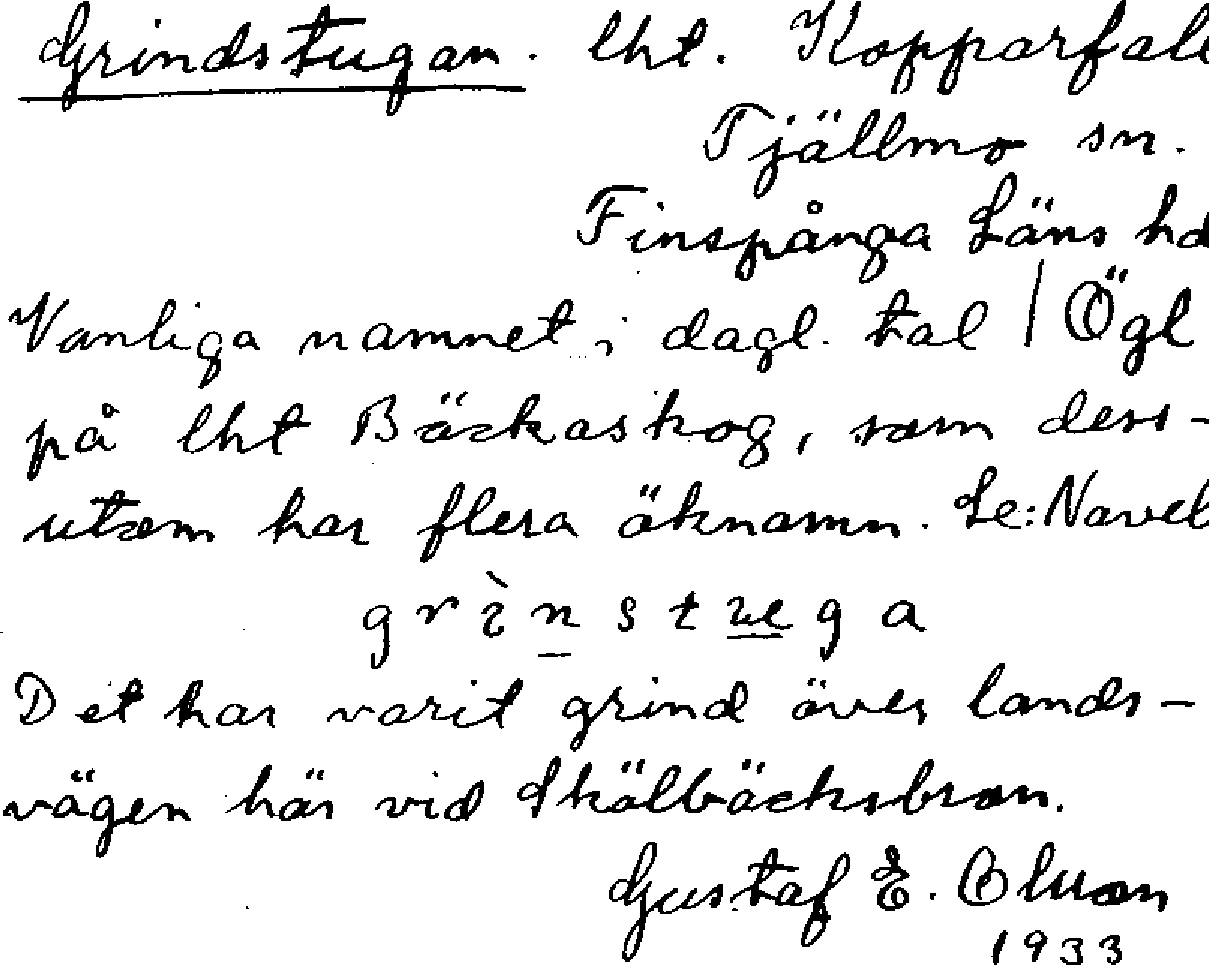 Grindstugan. lht. Kopparfall
Tjällmo sn.
Finspånga Läns hd
Vanliga namnet i dagl. tal / Ögl
på lht Bäckaskog, som dess-
utom har flera öknamn. Se: Navel
grìnstuega
Det har varit grind över lands-
vägen här vid Skälbäcksbron.
Gustaf E. Olsson
1933